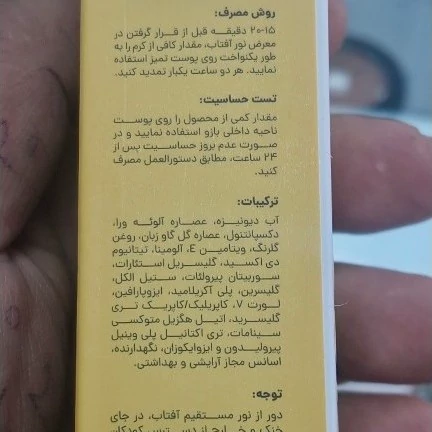 روش مصرف:
۲۰-۱۵ دقیقه قبل از قرار گرفتن در
معرض نور آفتاب، مقدار کافی از کرم را به
طور یکنواخت روی پوست تمیز استفاده
نمایید. هر دو ساعت یکبار تمدید کنید.
تست حساسیت:
مقدار کمی از محصول را روی پوست
ناحیه داخلی بازو استفاده نمایید و در
صورت عدم بروز حساسیت پس از
۲۴ ساعت، مطابق دستورالعمل مصرف
کنید.
ترکیبات:
آب دیونیزه، عصاره آلوئه ورا،
دکسپانتنول، عصاره گل گاو زبان، روغن
گلرنگ، ویتامین E، آلومینا، تیتانیوم
دی اکسید، گلیسریل استئارات،
سوربیتان پیرولئات، ستیل الکل،
گلیسرین، پلی آکریلامید، ایزوپارافین،
لورت ۷، کاپریلیک/کاپریک تری
گلیسرید، اتیل هگزیل متوکسی
سینامات، تری اکتانیل پلی وینیل
پیرولیدون و ایزوایکوزان، نگهدارنده،
اسانس مجاز آرایشی و بهداشتی.
توجه:
دور از نور مستقیم آفتاب، در جای
خنک و خارج از دسترس کودکان